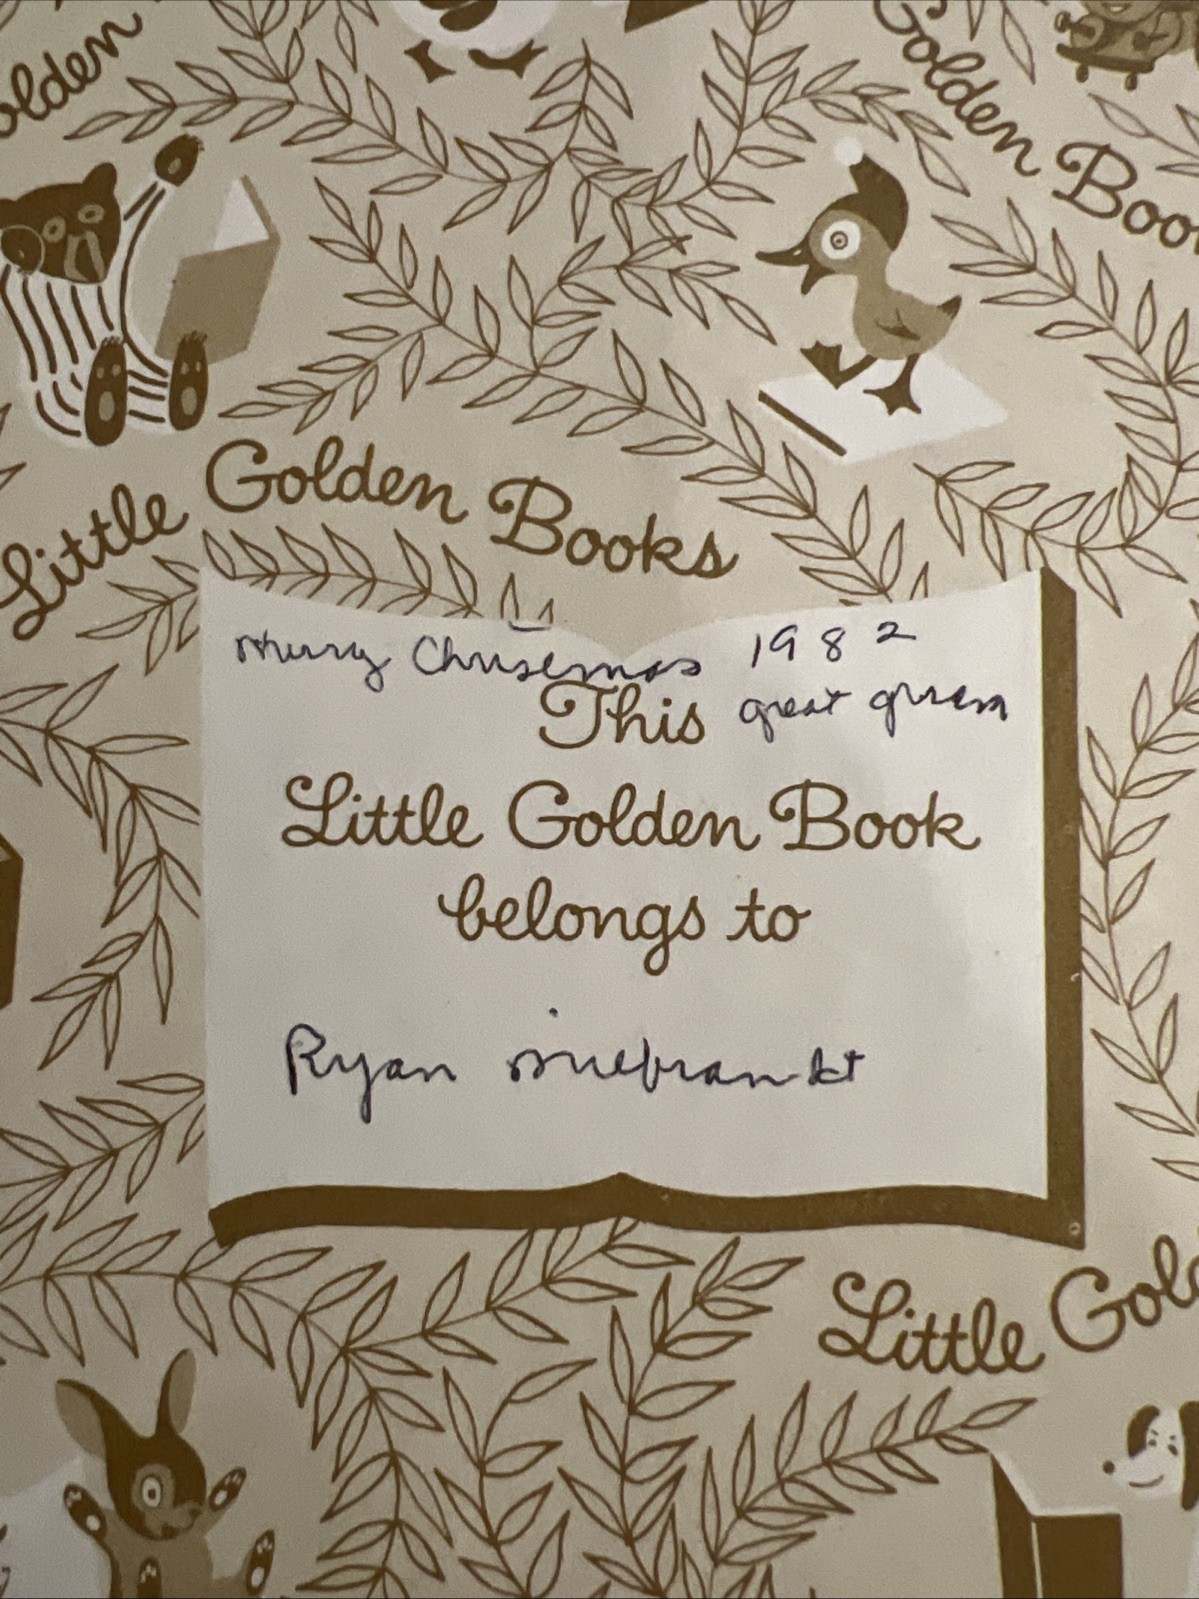 olden
Golden Boo
Little Golden Books
Merry Christmas 1982
great gram
This
Little Golden Book
belongs to
Ryan
Little Gol